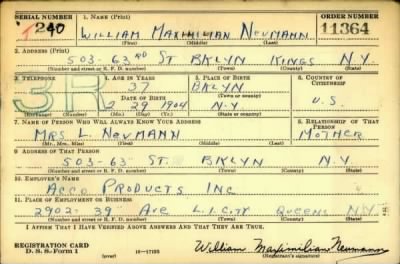 SERIAL NUMBER 1. NAME (Print) ORDER NUMBER
T240 WILLIAM MAXIMILIAN NEUMANN 11364
(First) (Middle) (Last)
2. ADDRESS (Print)
503-63RD ST BKLYN KINGS N.Y.
(Number and street or R. F. D. number) (Town) (County) (State)
3. TELEPHONE 4. AGE IN YEARS 5. PLACE OF BIRTH 6. COUNTRY OF CITIZENSHIP
37 BKLYN
DATE OF BIRTH (Town or county)
3R 2 29 1904 N.Y U.S.
(Exchange) (Number) (Mo.) (Day) (Yr.) (State or country)
7. NAME OF PERSON WHO WILL ALWAYS KNOW YOUR ADDRESS 8. RELATIONSHIP OF THAT PERSON
MRS L. NEUMANN MOTHER
(Mr., Mrs., Miss) (First) (Middle) (Last)
9. ADDRESS OF THAT PERSON
503-63 ST. BKLYN N.Y.
(Number and street or R. F. D. number) (Town) (County) (State)
10. EMPLOYER'S NAME
ACCO PRODUCTS INC
11. PLACE OF EMPLOYMENT OR BUSINESS
2902-39 AVE L.I.CITY QUEENS N.Y.
(Number and street or R. F. D. number) (Town) (County) (State)
I AFFIRM THAT I HAVE VERIFIED ABOVE ANSWERS AND THAT THEY ARE TRUE.
REGISTRATION CARD
D. S. S. Form 1 (over) 16-17105 William Maximilian Neumann
(Registrant's signature)